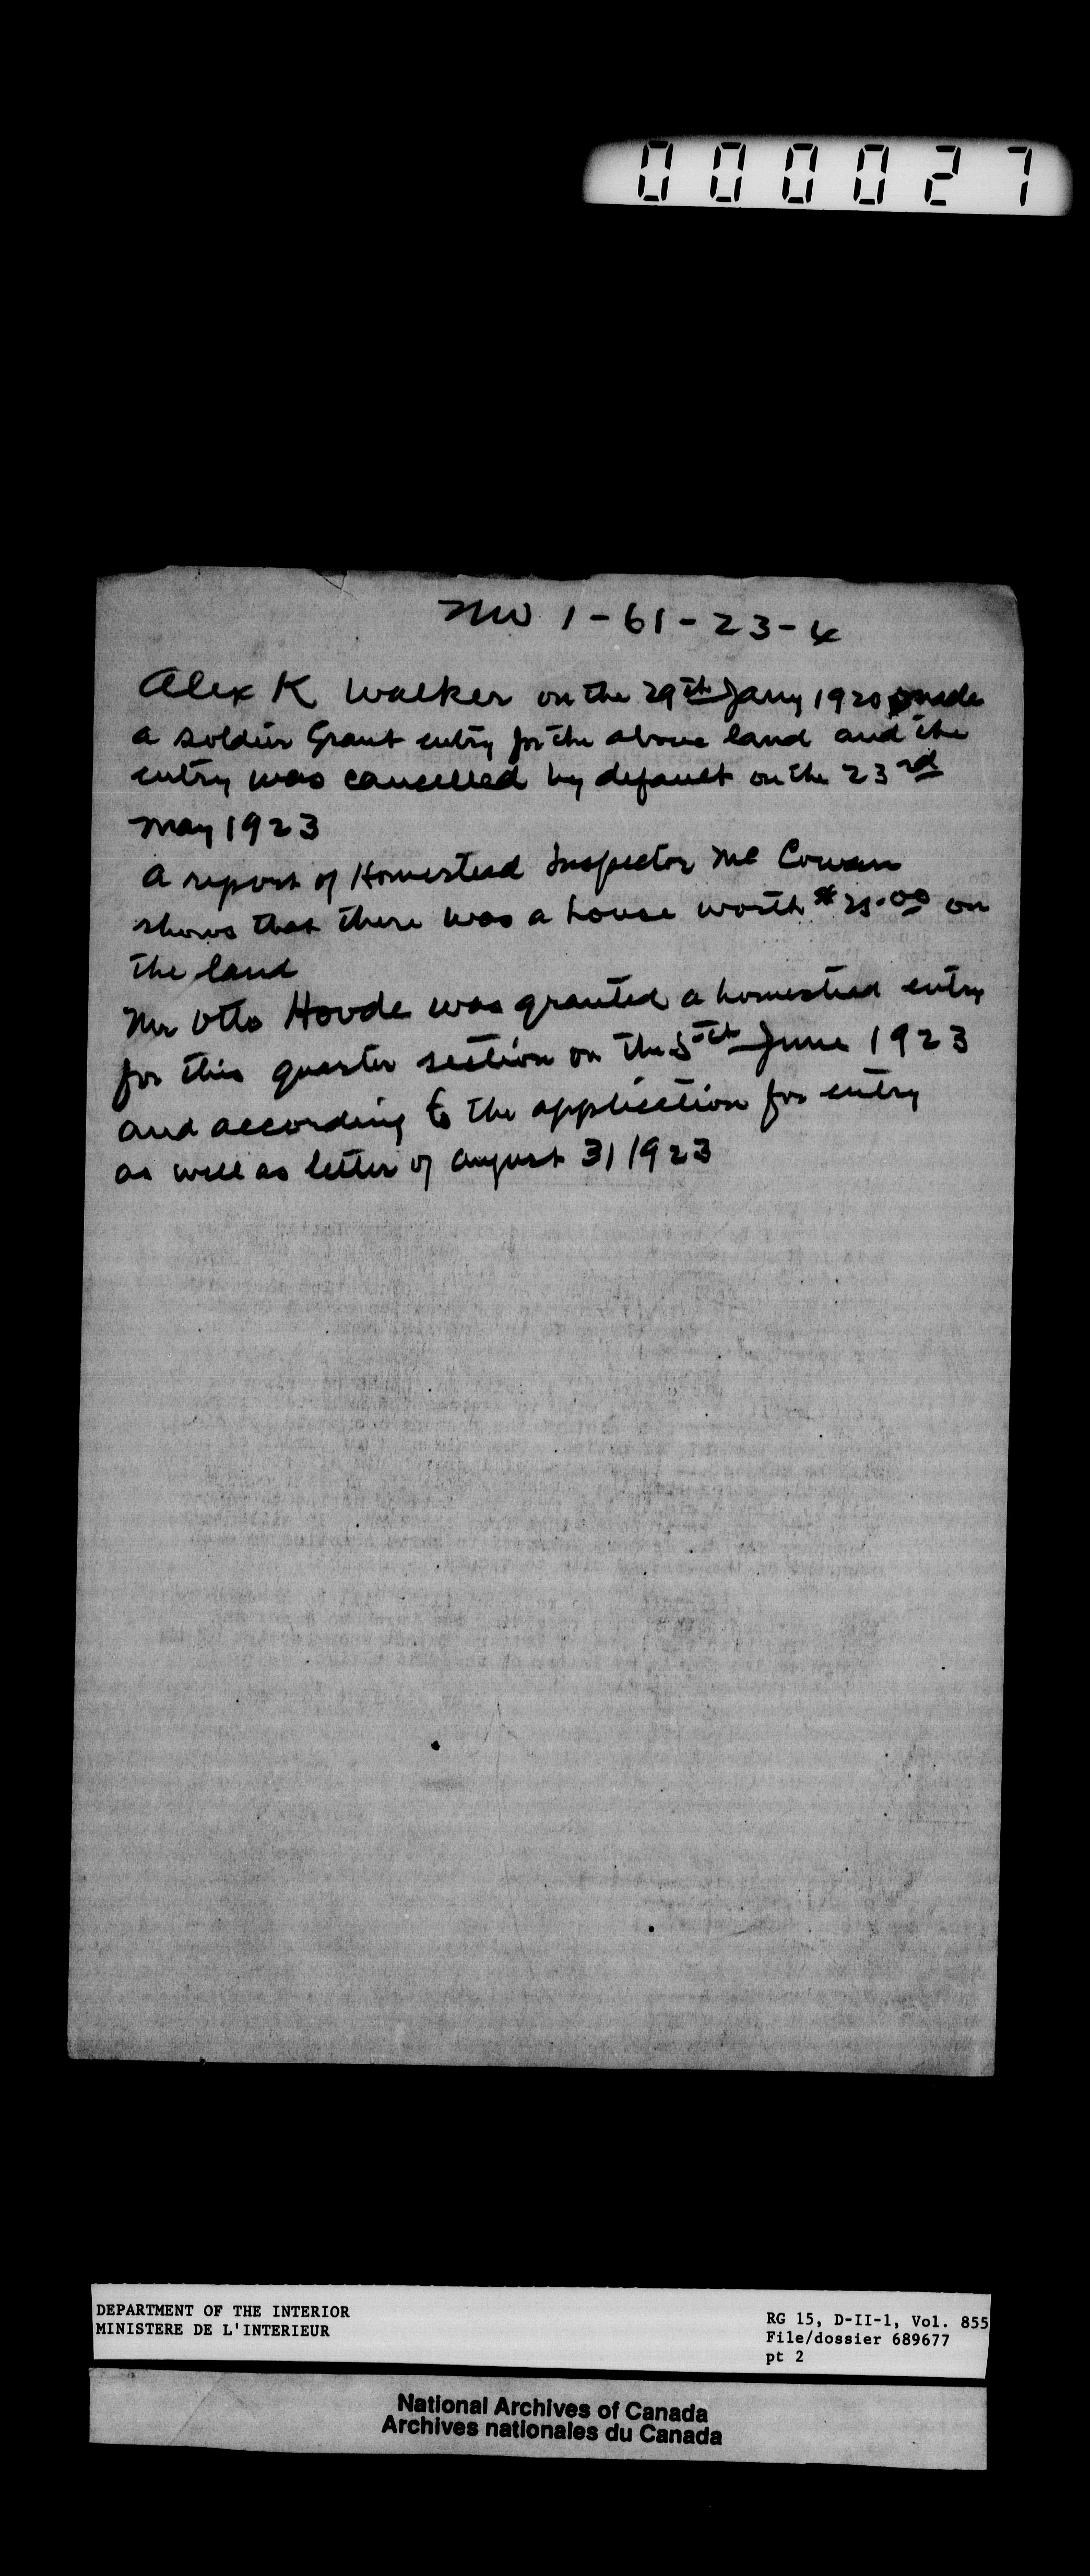 000027
NW 1-61-23-4
Alex K Walker on the 29th Jany 1920 made
a soldier Grant entry for the above land and the
entry was cancelled by default on the 23rd
May 1923
A report of Homestead Inspector Mc Cowan
shows that there was a house worth $25.00 on
the land
Mr Otto Hovde was granted a homestead entry
for this quarter section on the 5th June 1923
and according to the application for entry
as well as letter of August 31 1923
DEPARTMENT OF THE INTERIOR
MINISTERE DE L'INTERIEUR
RG 15, D-II-1, Vol. 855
File/dossier 689677
pt 2
National Archives of Canada
Archives nationales du Canada